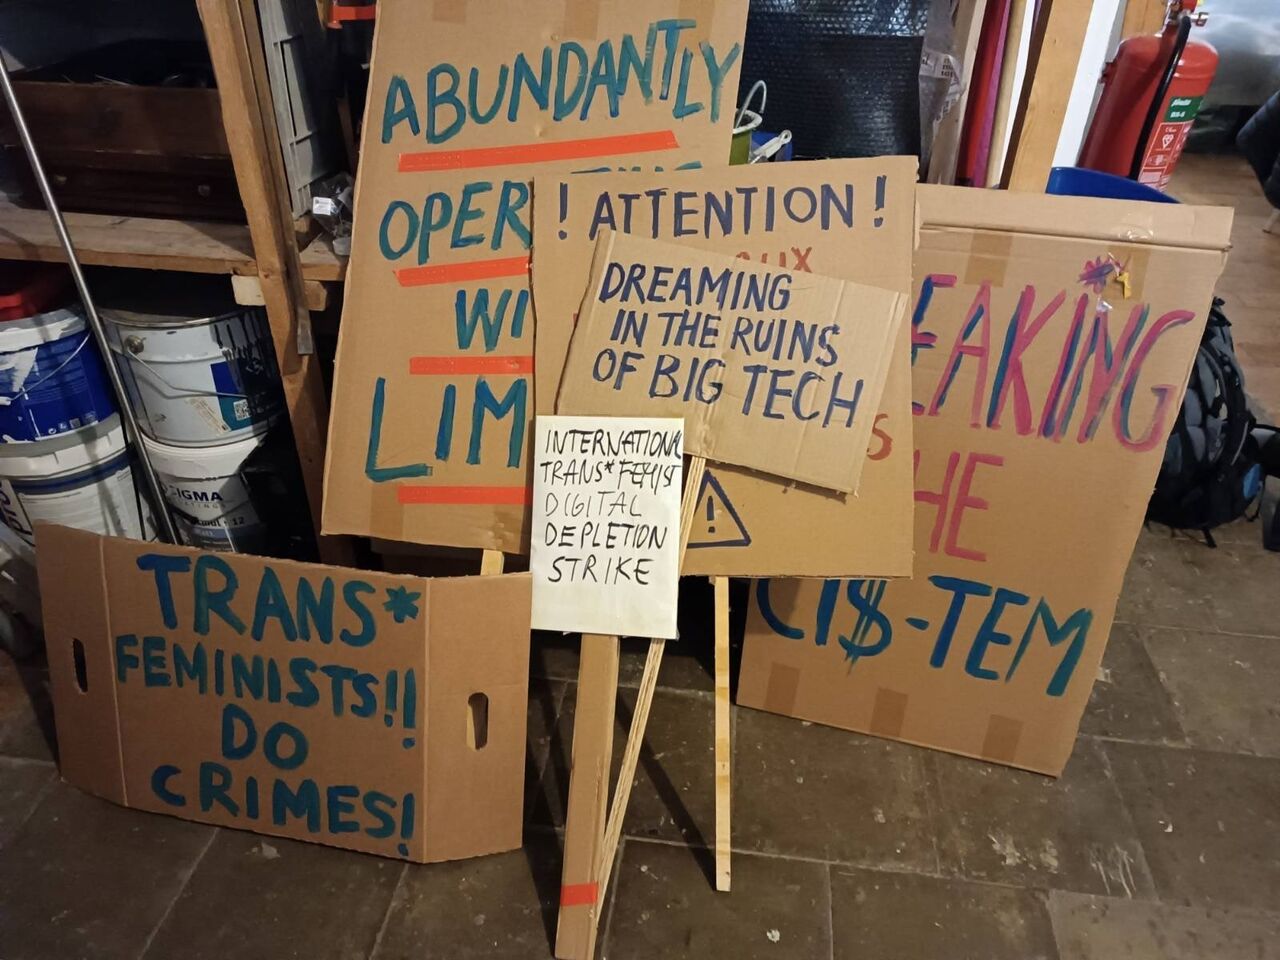 ABUNDANTLY
OPER
WI
LIM
! ATTENTION !
UX
S
DREAMING
IN THE RUINS
OF BIG TECH
EAKING
HE
CI$-TEM
INTERNATIONAL
TRANS*FEMIST
DIGITAL
DEPLETION
STRIKE
TRANS*
FEMINISTS!!
DO
CRIMES!
SIGMA